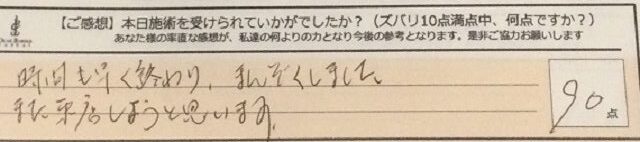 【ご感想】本日施術を受けられていかがでしたか？（ズバリ10点満点中、何点ですか？）
あなた様の率直な感想が、私達の何よりの力となり今後の参考となります。是非ご協力お願いします
時間も早く終わり、まんぞくしました。
また来店しようと思います。
90点